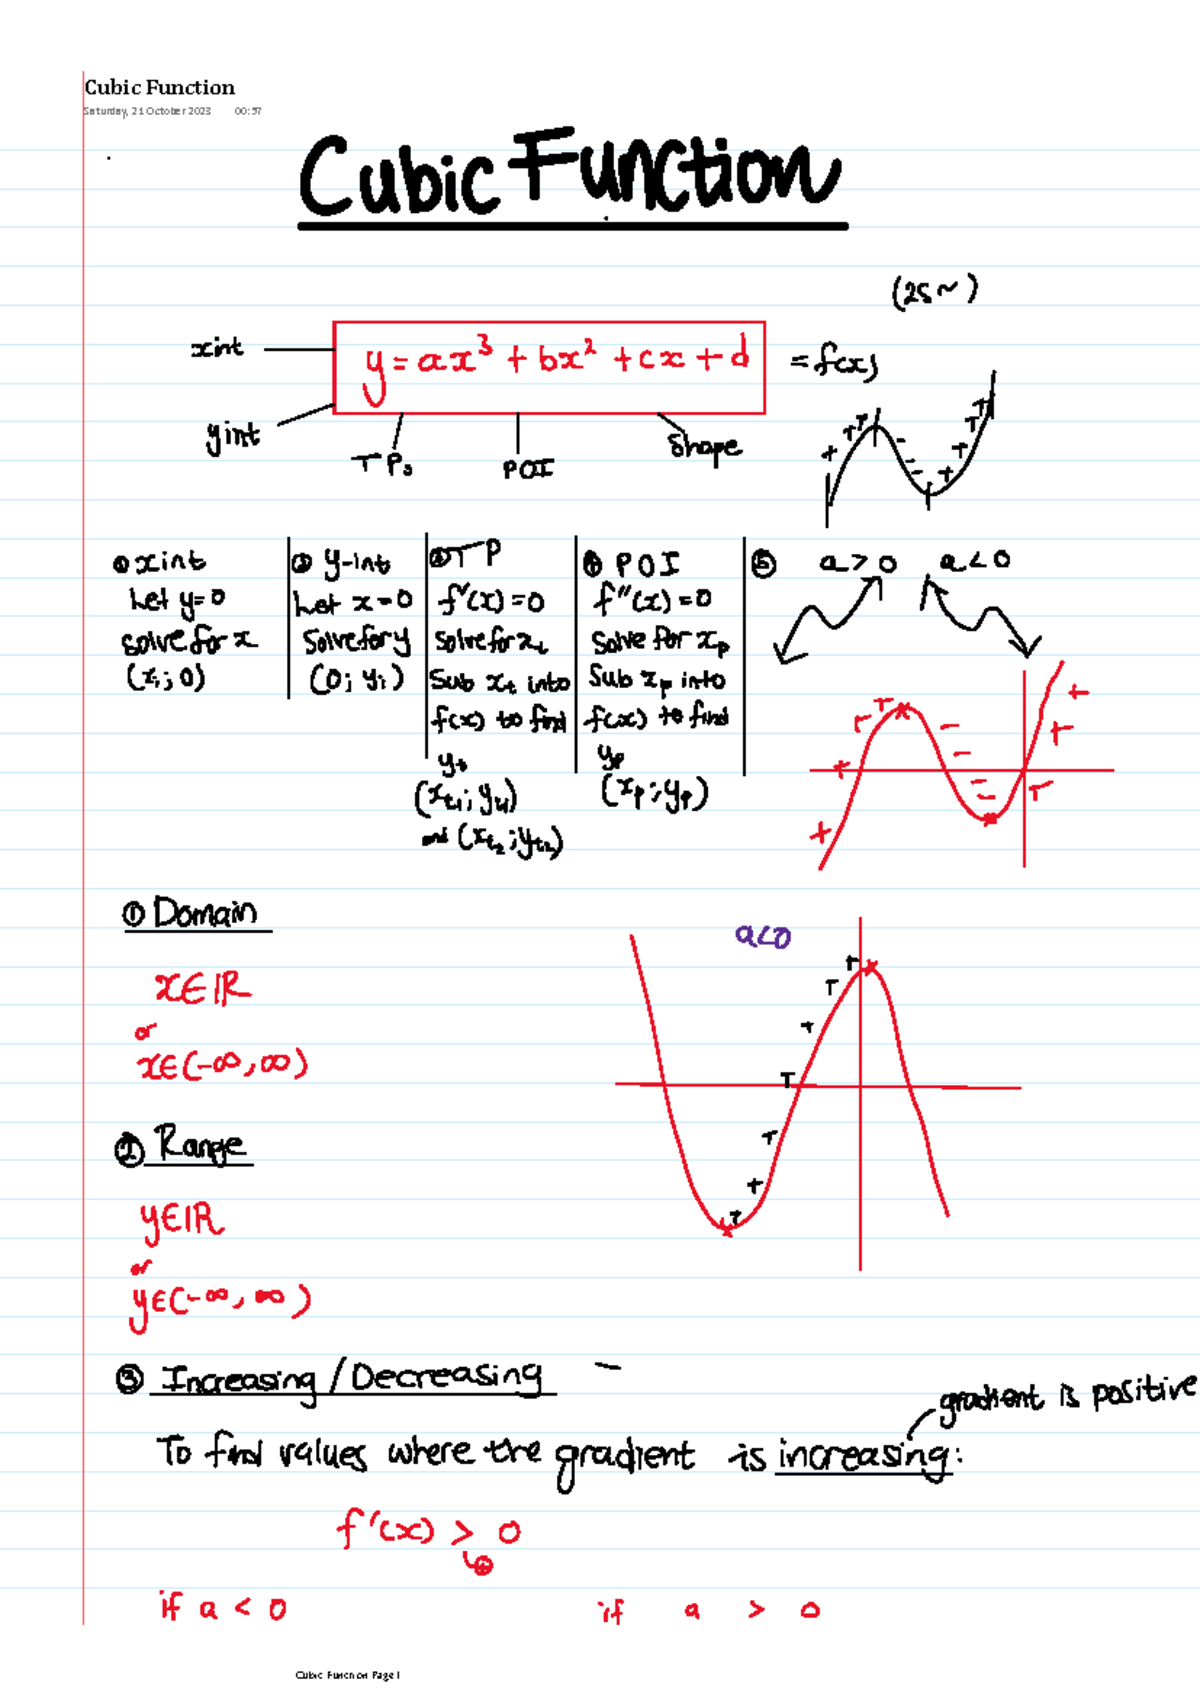 Cubic Function
Saturday, 21 October 2023 00:57
Cubic Function
(25~)
x int
y = ax³ + bx² + cx + d = f(x)
y int
TPs
POI
Shape
① x int
Let y=0
solve for x
(xᵢ; 0)
② y-int
Let x=0
Solve for y
(0; yᵢ)
③ TP
f'(x)=0
solve for xₜ
Sub xₜ into
f(x) to find
yₜ
(xₜ₁; yₜ₁)
and (xₜ₂; yₜ₂)
④ POI
f''(x)=0
Solve for xₚ
Sub xₚ into
f(x) to find
yₚ
(xₚ; yₚ)
⑤ a>0 a<0
① Domain
x∈ℝ
or
x∈(-∞, ∞)
a<0
② Range
y∈ℝ
or
y∈(-∞, ∞)
③ Increasing / Decreasing
gradient is positive
To find values where the gradient is increasing:
f'(x) > 0
if a < 0 if a > 0
Cubic Function Page 1